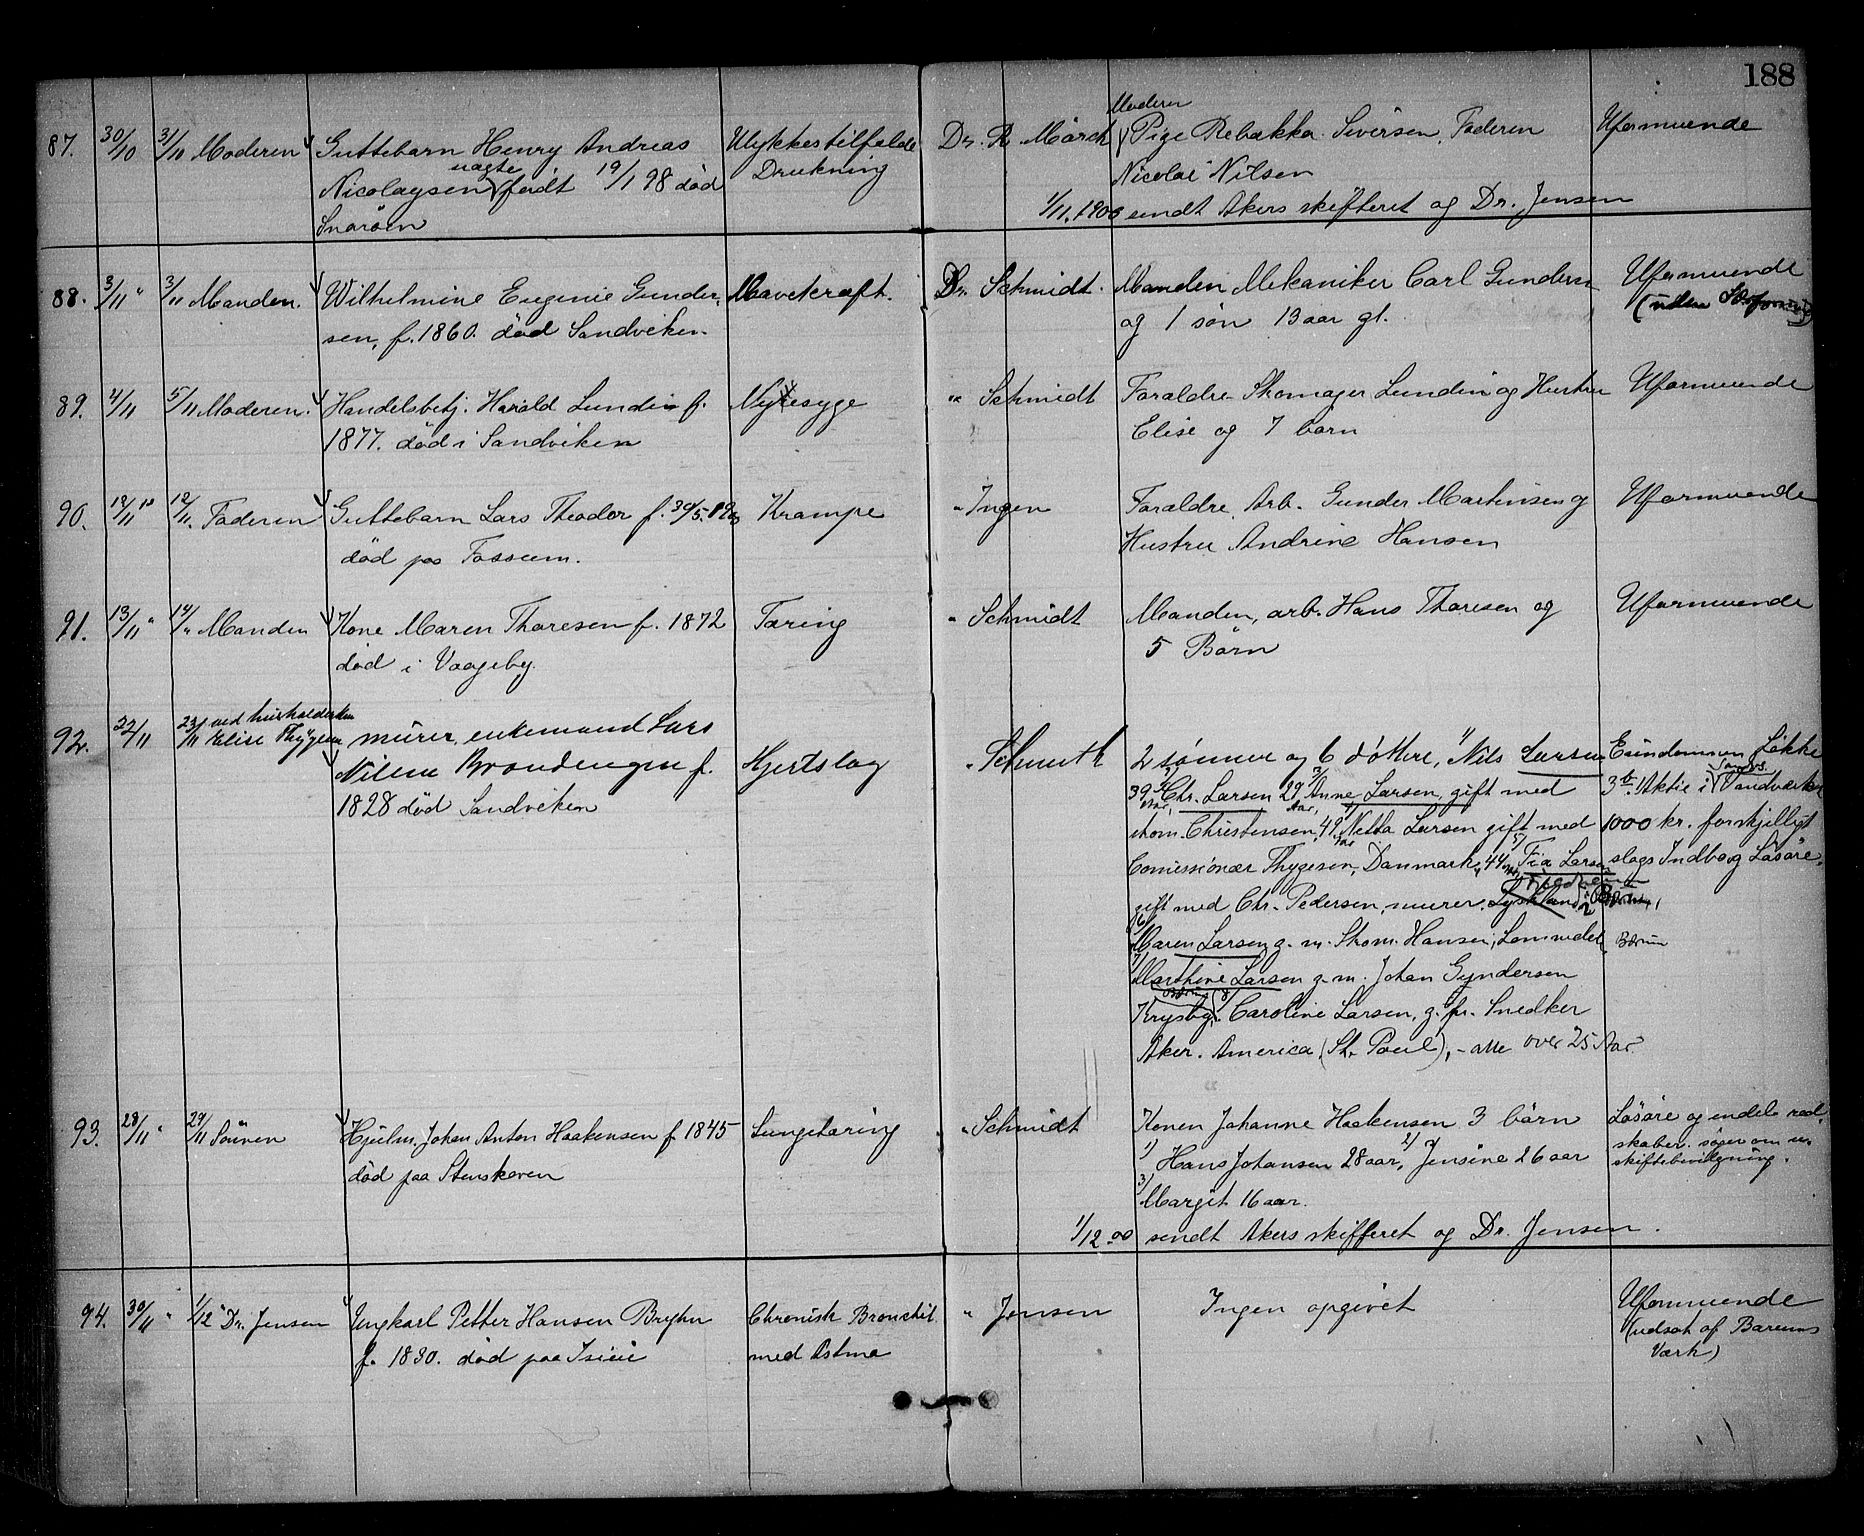 188
87. 30/10 31/10 Moderen Guttebarn Henry Andreas Ulykkestilfælde Dr. R. Mørch Moderen
Pige Rebækka Siversen, Faderen Uformuende
Nicolaysen uægte født 19/1 98 død Drukning Nicolai Nilsen
Snarøen
1/11. 1900 sendt Akers skifteret og Dr. Jensen
88. 3/11 " 3/11 Manden. Wilhelmine Eugenie Gunder- Mavekræft. Dr. Schmidt. Manden Mekaniker Carl Gundersen Uformuende
sen, f. 1860. død Sandviken. og 1 søn 13 aar gl. (uden
89. 4/11 5/11 Moderen. Handelsbetj. Harald Lundin f. Nyresyge " Schmidt Forældre Skomager Lundin og Hustru Uformuende
1877. død i Sandviken Elise og 7 børn
90. 12/11 12/11. Faderen Guttebarn Lars Theodor f. 30/5. 1900 Krampe " Ingen Forældre Arb. Gunder Martinsen og Uformuende
død paa Fossum. Hustru Andrine Hansen
91. 13/11 " 14/" Manden Kone Maren Thoresen f. 1872 Tæring " Schmidt Manden, arb. Hans Thoresen og Uformuende
død i Vaageby. 5 Børn
92. 22/11 23/11 ved husholdersken
Elise Thygesen murer, enkemand Lars
Nilsen Brændengen f. Hjertslag " Schmidt 2 sønner og 6 døttre, 1/ Nils Larsen Eiendommen Løkke
1828 død Sandviken 39 Aar, 2/ Chr. Larsen 29 Aar, 3/ Anne Larsen, gift med 3 Aktie i Sandv. Vandværk
skom. Christensen, 49 Aar 4/ Netta Larsen gift med 1000 kr. forskjelligt
Comissionær Thygesen, Danmark, 44 Aar, 5/ Fia Larsen slags Indbo og Løsøre.
gift med Chr. Pedersen, murer. Tyskland i Bærum,
6/ Maren Larsen g. m. Skom. Hansen, Lommedal. Bærum
7/ Marthine Larsen g. m. Johan Gyndersen
Krysby, Bærum 8/ Caroline Larsen, g. m. Snedker
Aker. America (St. Poul), - alle over 25 Aar.
93. 28/11 " 29/11 Sønnen Hjulm. Johan Anton Haakensen f 1845 Lungetæring " Schmidt Konen Johanne Haakensen 3 børn Løsøre og endel red-
død paa Stenskoven 1/ Hans Johansen 28 aar, 2/ Jensine 26 aar skaber. søger om u-
skiftebevilgning.
3/ Margit 16 aar.
1/12 00 sendt Akers skifteret og Dr. Jensen.
94. 30/11 " 1/12 Dr. Jensen Ungkarl Petter Hansen Bryhn Chronisk Bronchit " Jensen Ingen opgivet Uformuende
f. 1830. død paa med Astma (udsat af Bærums
Værk)